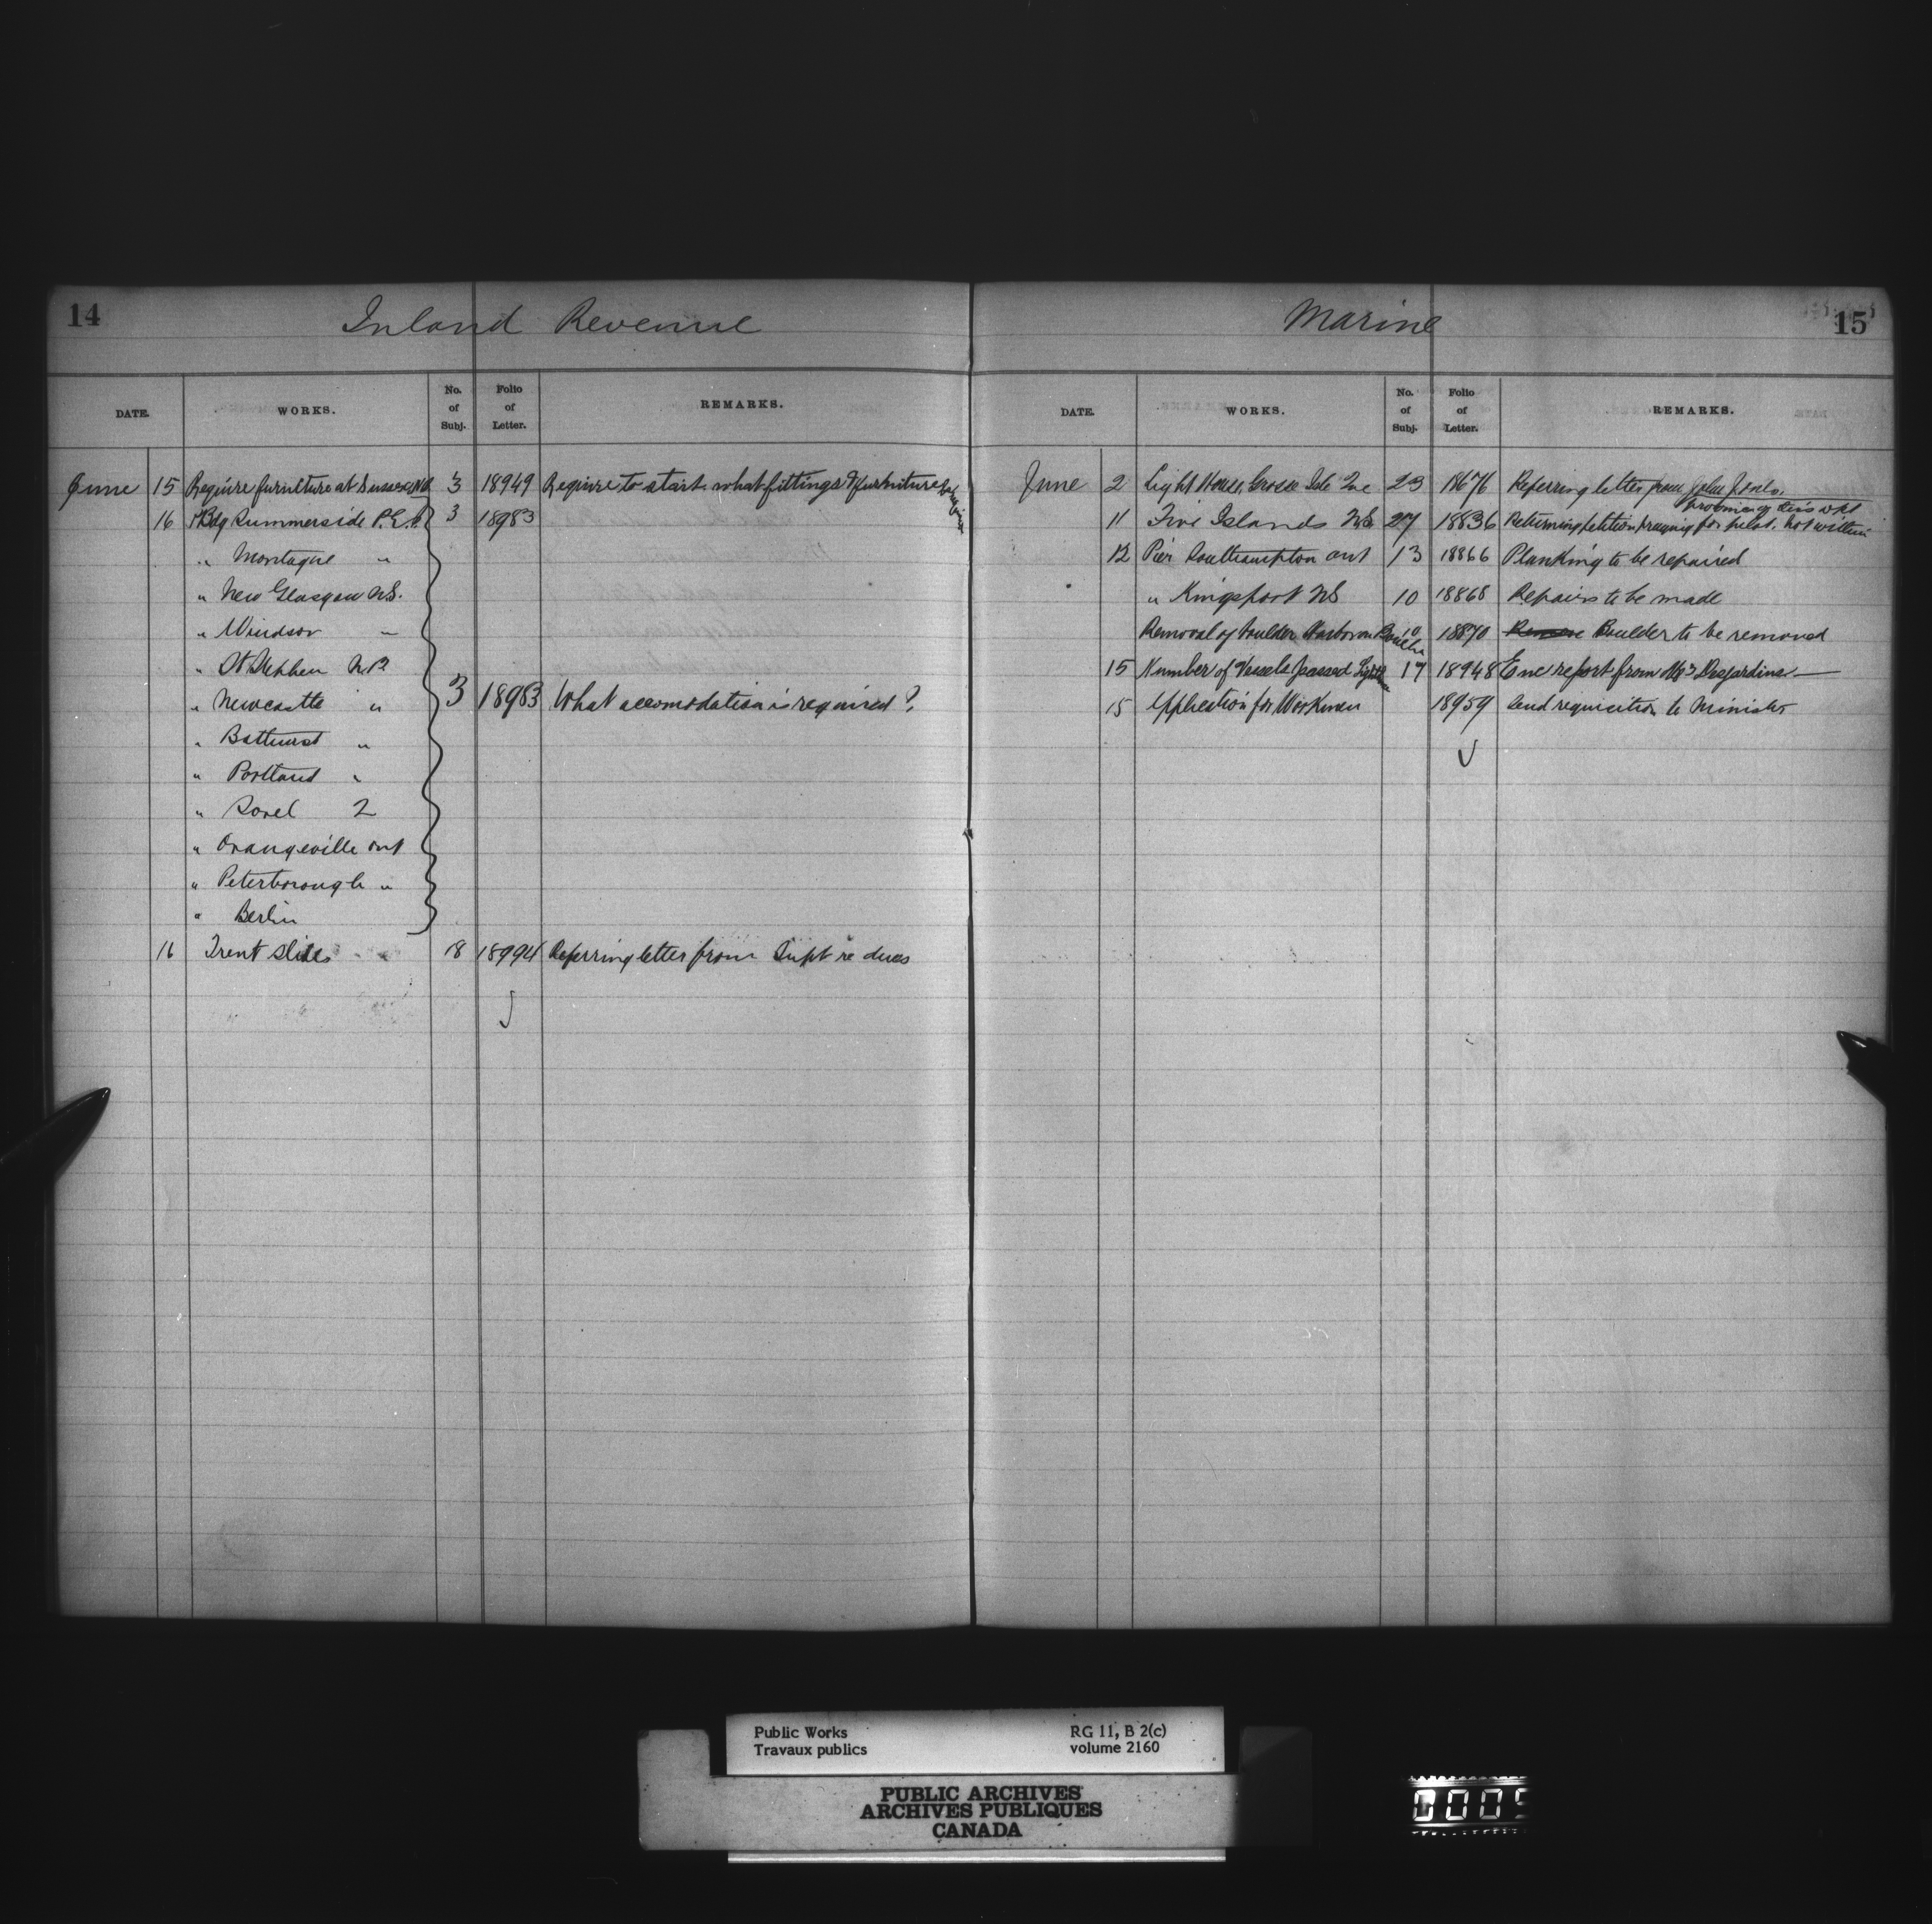 14
Inland Revenue
DATE. WORKS. No. of Subj. Folio of Letter. REMARKS.
June 15 Require furniture at Sussex NB 3 18949 Require to start what fittings & furniture
16 PBdg Summerside P.E.I. 3 18983
" Montague "
" New Glasgow N.S.
" Windsor "
" St Stephen N.B.
" Newcastle " 3 18983 What accomodation is required?
" Bathurst "
" Portland "
" Sorel 2
" Orangeville Ont
" Peterborough "
" Berlin
16 Trent Slides 18 18994 Referring letter from Supt re dues
Marine
15
DATE. WORKS. No. of Subj. Folio of Letter. REMARKS.
June 2 Light House, Grosse Isle Que 23 18676 Referring letter from John
11 Five Islands NS 27 18836 Returning petition praying for not within
province of this dept
12 Pier Southampton Ont 13 18866 Planking to be repaired
" Kingsport NS 10 18868 Repairs to be made
Removal of boulder Harbor 10 18870 Remove Boulder to be removed
15 Number of Vessels passed 17 18948 Enc report from Mr Desjardins
15 Application for Workmen 18959 Send requisition to Minister
Public Works
Travaux publics
RG 11, B 2(c)
volume 2160
PUBLIC ARCHIVES
ARCHIVES PUBLIQUES
CANADA
0005